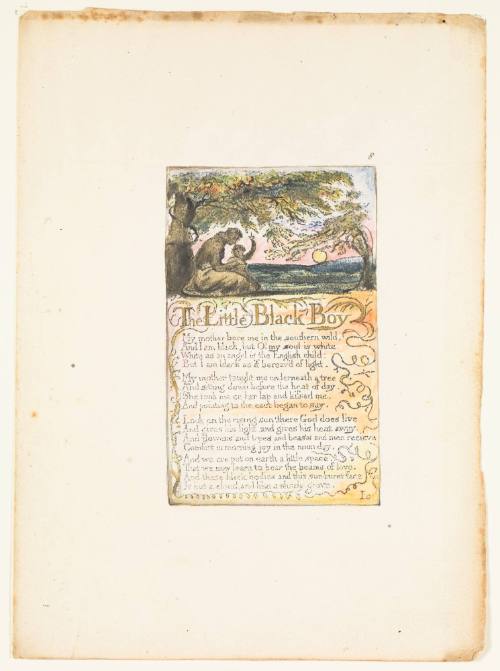 8
The Little Black Boy
My mother bore me in the southern wild,
And I am black, but O! my soul is white
White as an angel is the English child:
But I am black as if bereav'd of light.
My mother taught me underneath a tree
And sitting down before the heat of day
She took me on her lap and kissed me
And pointing to the east began to say.
Look on the rising sun: there God does live
And gives his light, and gives his heat away
And flowers and trees and beasts and men recieve
Comfort in morning joy in the noon day.
And we are put on earth a little space
That we may learn to bear the beams of love,
And these black bodies and this sun-burnt face
Is but a cloud, and like a shady grove.